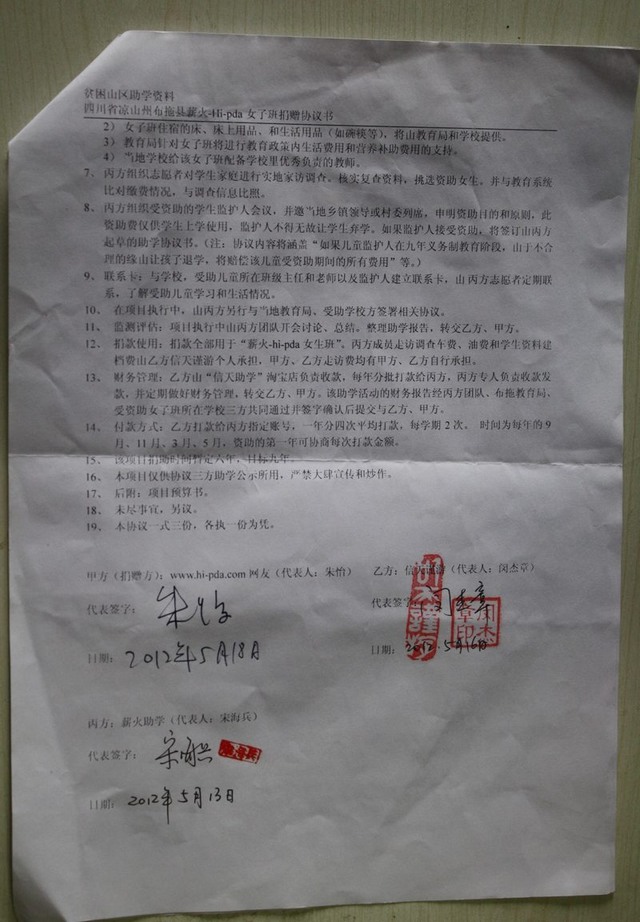 贫困山区助学资料
四川省凉山州布拖县薪火-Hi-pda 女子班捐赠协议书
2） 女子班住宿的床、床上用品、和生活用品（如碗筷等），将由教育局和学校提供。
3） 教育局针对女子班将进行教育政策内生活费用和营养补助费用的支持。
4） 当地学校给该女子班配备学校里优秀负责的教师。
7、 丙方组织志愿者对学生家庭进行实地家访调查、核实复查资料，挑选资助女生。并与教育系统
比对缴费情况，与调查信息比照。
8、 丙方组织受资助的学生监护人会议，并邀当地乡镇领导或村委列席，申明资助目的和原则，此
资助费仅供学生上学使用，监护人不得无故让学生弃学。如果监护人接受资助，将签订由丙方
起草的助学协议书。（注：协议内容将涵盖“如果儿童监护人在九年义务制教育阶段，由于不合
理的缘由让孩子退学，将赔偿该儿童受资助期间的所有费用”等。）
9、 联系卡：与学校，受助儿童所在班级主任和老师以及监护人建立联系卡，由丙方志愿者定期联
系，了解受助儿童学习和生活情况。
10、 在项目执行中，由丙方另行与当地教育局、受助学校方签署相关协议。
11、 监测评估：项目执行中由丙方团队开会讨论、总结。整理助学报告，转交乙方、甲方。
12、 捐款使用：捐款全部用于“薪火-hi-pda 女生班”。丙方成员走访调查车费、油费和学生资料建
档费由乙方信天谨游个人承担，甲方、乙方走访费均有甲方、乙方自行承担。
13、 财务管理：乙方由“信天助学”淘宝店负责收款，每年分批打款给丙方，丙方专人负责收款发
款，并定期做好财务管理，转交乙方、甲方。该助学活动的财务报告经丙方团队、布拖教育局、
受资助女子班所在学校三方共同通过并签字确认后提交与乙方、甲方。
14、 付款方式：乙方打款给丙方指定账号，一年分四次平均打款，每学期 2 次。 时间为每年的 9
月、11 月、3 月、5 月，资助的第一年可协商每次打款金额。
15、 该项目捐助时间暂定六年，目标九年。
16、 本项目仅供协议三方助学公示所用，严禁大肆宣传和炒作。
17、 后附：项目预算书。
18、 未尽事宜，另议。
19、 本协议一式三份，各执一份为凭。
甲方（捐赠方）：www.hi-pda.com 网友（代表人：朱怡） 乙方：信天谨游（代表人：闵杰章）
代表签字： 朱怡 代表签字： 闵杰章
日期： 2012年5月18日 日期： 2012.5月16日
丙方：薪火助学（代表人：宋海兵）
代表签字： 宋海兵
日期： 2012年5月13日